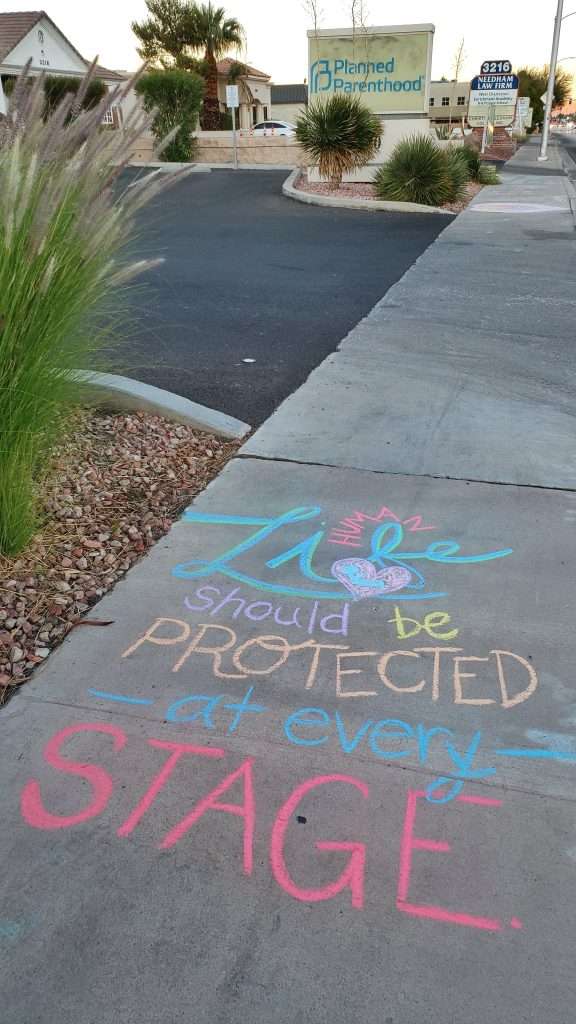 Planned
Parenthood®
3216
NEEDHAM
LAW FIRM
HUMAN
Life
should be
PROTECTED
at every
STAGE.